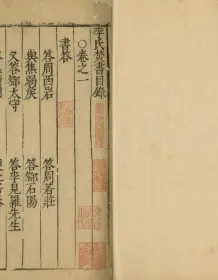 李氏焚書目錄
○卷之一
書答
答周西岩 答周若莊
與焦弱侯 答鄧石陽
又答鄧太守 答李見羅先生